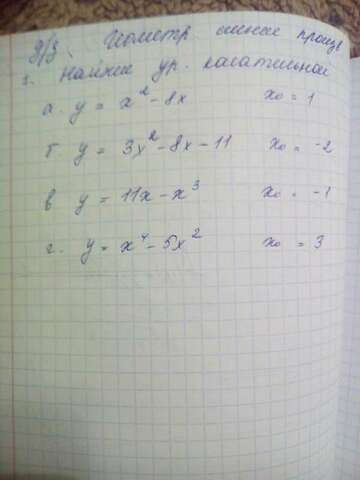 Д/З. Геометр. смысл произв
1. Найти ур. касательной
а. y = x² - 8x x₀ = 1
б. y = 3x² - 8x - 11 x₀ = -2
в y = 11x - x³ x₀ = -1
г. y = x⁴ - 5x² x₀ = 3